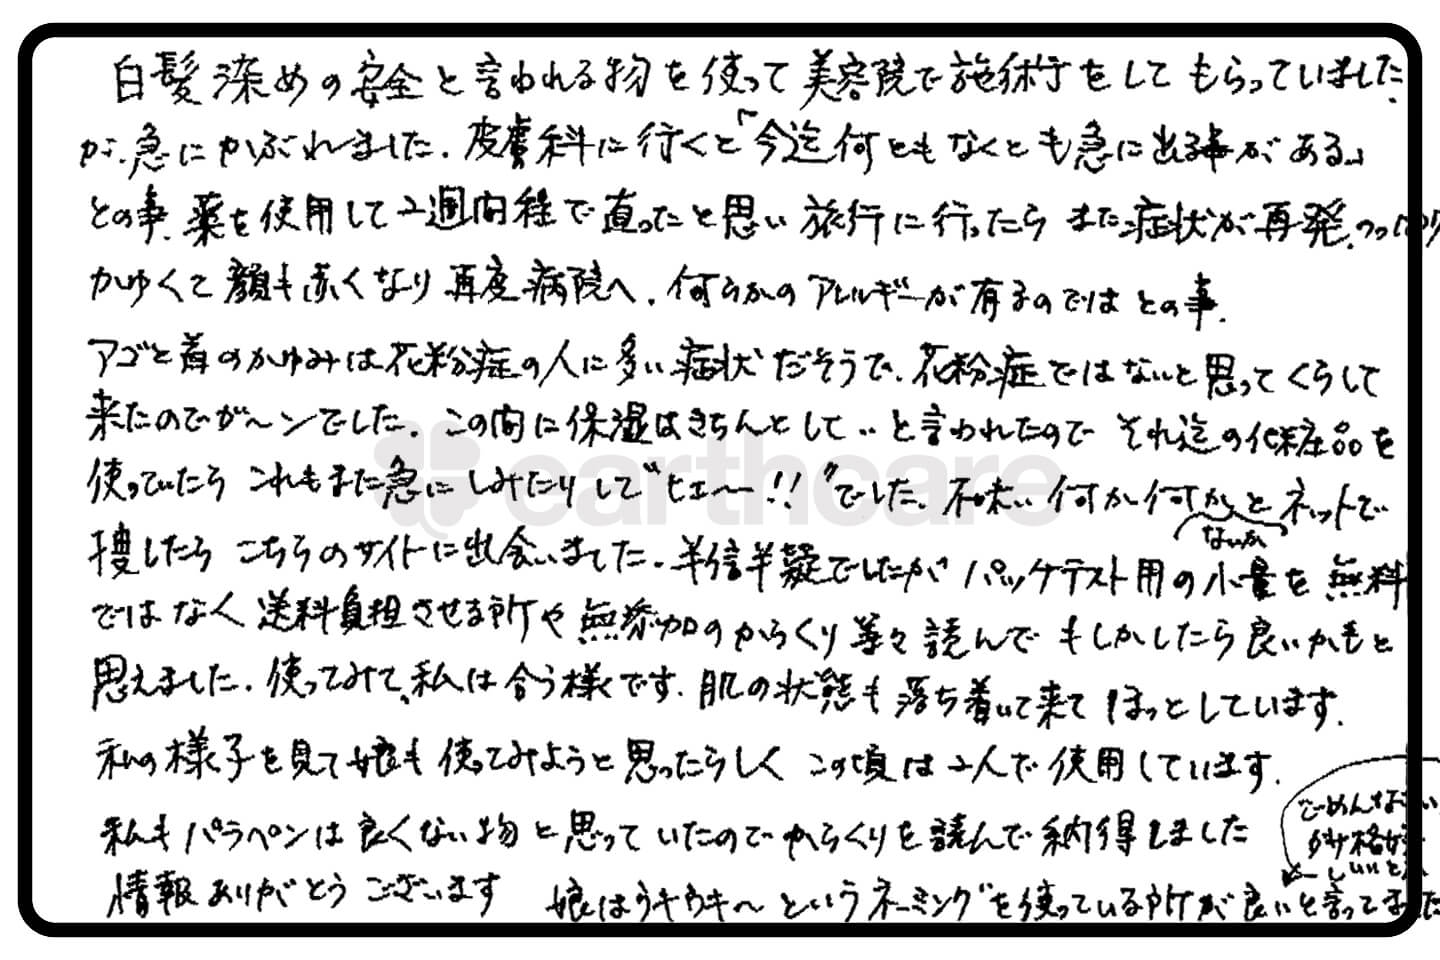 白髪染めの安全と言われる物を使って美容院で施術をしてもらっていました
が、急にかぶれました。皮膚科に行くと「今迄何ともなくとも急に出る事がある。」
との事。薬を使用して2週間程で直ったと思い旅行に行ったら また症状が再発。
かゆくて顔も赤くなり 再度病院へ。何らかのアレルギーが有るのではとの事。
アゴと首のかゆみは花粉症の人に多い症状だそうで、花粉症ではないと思ってくらして
来たのでが〜ンでした。この間に保湿はきちんとして‥と言われたので それ迄の化粧品を
使っていたら これもまた急にしみたりして〝ヒェ〜!!〟でした。 何か何かとネットで
ないか
捜したら こちらのサイトに出会いました。半信半疑でしたがパッケテスト用の小量を無料
ではなく 送料負担させる所や無添加のからくり等々読んで もしかしたら良いかもと
思えました。使ってみて、私は合う様です。肌の状態も落ち着いて来てほっとしています。
私の様子を見て娘も使ってみようと思ったらしくこの頃は2人で使用しています。
私もパラベンは良くない物と思っていたのでからくりを読んで納得しました
情報ありがとうございます 娘はウキウキ〜というネーミングを使っている所が良いと言ってました
ごめんなさい